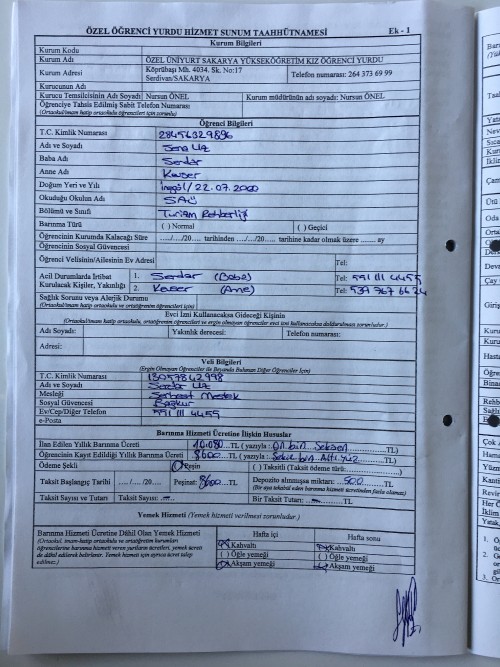 ÖZEL ÖĞRENCİ YURDU HİZMET SUNUM TAAHHÜTNAMESİ Ek - 1
Kurum Bilgileri
Kurum Kodu
Kurum Adı ÖZEL ÜNİYURT SAKARYA YÜKSEKÖĞRETİM KIZ ÖĞRENCİ YURDU
Kurum Adresi Köprübaşı Mh. 4034. Sk. No:17 Serdivan/SAKARYA Telefon numarası: 264 373 69 99
Kurucunun Adı
Kurucu Temsilcisinin Adı Soyadı: Nursun ÖNEL Kurum müdürünün adı soyadı: Nursun ÖNEL
Öğrenciye Tahsis Edilmiş Sabit Telefon Numarası
(Ortaokul/imam hatip ortaokulu öğrencileri için zorunlu)
Öğrenci Bilgileri
T.C. Kimlik Numarası 28456329896
Adı ve Soyadı Sena
Baba Adı Serdar
Anne Adı Kevser
Doğum Yeri ve Yılı İnegöl / 22.07.2000
Okuduğu Okulun Adı SAÜ
Bölümü ve Sınıfı Turizm Rehberliği
Barınma Türü ( ) Normal ( ) Geçici
Öğrencinin Kurumda Kalacağı Süre ..../..../20.... tarihinden ..../..../20..... tarihine kadar olmak üzere ....... ay
Öğrencinin Sosyal Güvencesi
Öğrenci Velisinin/Ailesinin Ev Adresi Tel:
Acil Durumlarda İrtibat Kurulacak Kişiler, Yakınlığı 1. Serdar (Baba) Tel: 551 111 4455
2. Kevser (Anne) Tel: 537 767 6424
Sağlık Sorunu veya Alerjik Durumu
(Ortaokul/imam hatip ortaokulu ve ortaöğretim öğrencileri için)
Evci İzni Kullanacaksa Gideceği Kişinin
(Ortaokul/imam hatip ortaokulu, ortaöğretim öğrencileri ve ergin olmayan öğrenciler evci izni kullanacaksa doldurulması zorunludur.)
Adı Soyadı: Yakınlık derecesi: Telefon numarası:
Adresi:
Veli Bilgileri
(Ergin Olmayan Öğrenciler ile Beyanda Bulunan Diğer Öğrenciler İçin)
T.C. Kimlik Numarası 13057842998
Adı ve Soyadı Serdar
Mesleği Serbest Meslek
Sosyal Güvencesi Bağkur
Ev/Cep/Diğer Telefon 551 111 4455
e-Posta
Barınma Hizmeti Ücretine İlişkin Hususlar
İlan Edilen Yıllık Barınma Ücreti 10.080 TL ( yazıyla : On bin Seksen TL)
Öğrencinin Kayıt Edildiği Yıllık Barınma Ücreti 8600 TL ( yazıyla : Sekiz bin Altı yüz TL)
Ödeme Şekli Peşin ( ) Taksitli (Taksit ödeme türü:
Taksit Başlangıç Tarihi ..../..../20.... Peşinat: 8600 TL Depozito alınmışsa miktarı: 500 TL
(Bir aya tekabül eden barınma hizmeti ücretinden fazla olamaz)
Taksit Sayısı ve Tutarı Taksit Sayısı: Bir Taksit Tutarı: TL
Yemek Hizmeti (Yemek hizmeti verilmesi zorunludur.)
Barınma Hizmeti Ücretine Dâhil Olan Yemek Hizmeti Hafta içi Hafta sonu
(Ortaokul, imam-hatip ortaokulu ve ortaöğretim kurumları öğrencilerine barınma hizmeti veren yurtların ücretleri, yemek ücreti de dâhil edilerek belirlenir. Yemek hizmeti için ayrıca ücret talep edilmez.)
Kahvaltı Kahvaltı
( ) Öğle yemeği ( ) Öğle yemeği
Akşam yemeği Akşam yemeği